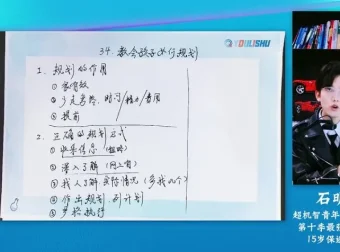 YOULISHU
34. 教会孩子如何规划
1. 规划的作用
①更有效
②少走弯路、时间/精力/费用
③提前
2. 正确的规划方式
①收集信息(粗略)
②深入了解(网上有)
③找人了解实际情况(多找几个)
④作出规划、列计划
⑤严格执行
超机智青年
第十季最强
15岁保送